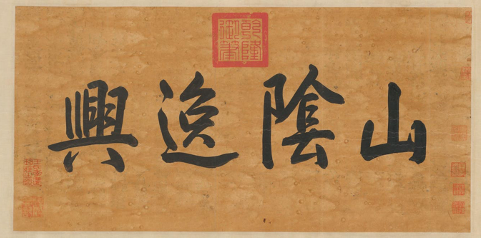 乾隆御筆
山陰逸興